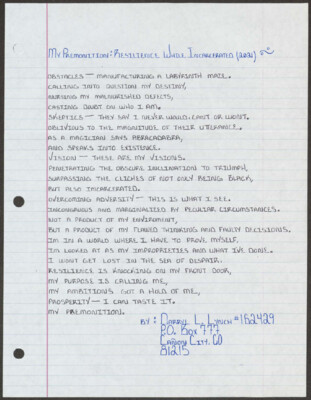 MY PREMONITION: RESILIENCE WHILE INCARCERATED (2021)
OBSTACLES — MANUFACTURING A LABYRINTH MAZE.
CALLING INTO QUESTION MY DESTINY,
MY MALNOURISHED DEFECTS,
CASTING DOUBT ON WHO I AM.
SKEPTICS — THEY SAY I NEVER WOULD. CAN'T OR WON'T.
OBLIVIOUS TO THE MAGNITUDE OF THEIR UTTERANCE.
AS A MAGICIAN SAYS ABRACADABRA,
AND SPEAKS INTO EXISTENCE.
VISION — THESE ARE MY VISIONS.
PENETRATING THE OBSCURE INCLINATION TO TRIUMPH,
SURPASSING THE CLICHES OF NOT ONLY BEING BLACK,
BUT ALSO INCARCERATED.
OVERCOMING ADVERSITY — THIS IS WHAT I SEE.
INCONGRUOUS AND MARGINALIZED BY PECULIAR CIRCUMSTANCES.
NOT A PRODUCT OF MY ENVIROMENT,
BUT A PRODUCT OF MY FLAWED THINKING AND FAULTY DECISIONS.
I'M IN A WORLD WHERE I HAVE TO PROVE MYSELF.
I'M LOOKED AT AS MY IMPROPRIETIES AND WHAT I'VE DONE.
I WON'T GET LOST IN THE SEA OF DESPAIR.
RESILIENCE IS KNOCKING ON MY FRONT DOOR,
MY PURPOSE IS CALLING ME,
MY AMBITIONS GOT A HOLD OF ME,
PROSPERITY — I CAN TASTE IT.
MY PREMONITION.
BY: DARRYL L. LYNCH #162429
P.O. BOX 777
CAÑON CITY, CO
81215